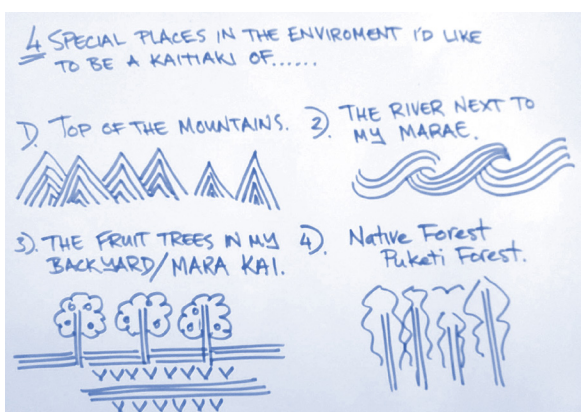 4 SPECIAL PLACES IN THE ENVIROMENT I'D LIKE
TO BE A KAITIAKI OF......
1) TOP OF THE MOUNTAINS.
2) THE RIVER NEXT TO
MY MARAE.
3) THE FRUIT TREES IN MY
BACKYARD/MARA KAI.
4) Native Forest
Puketi Forest.